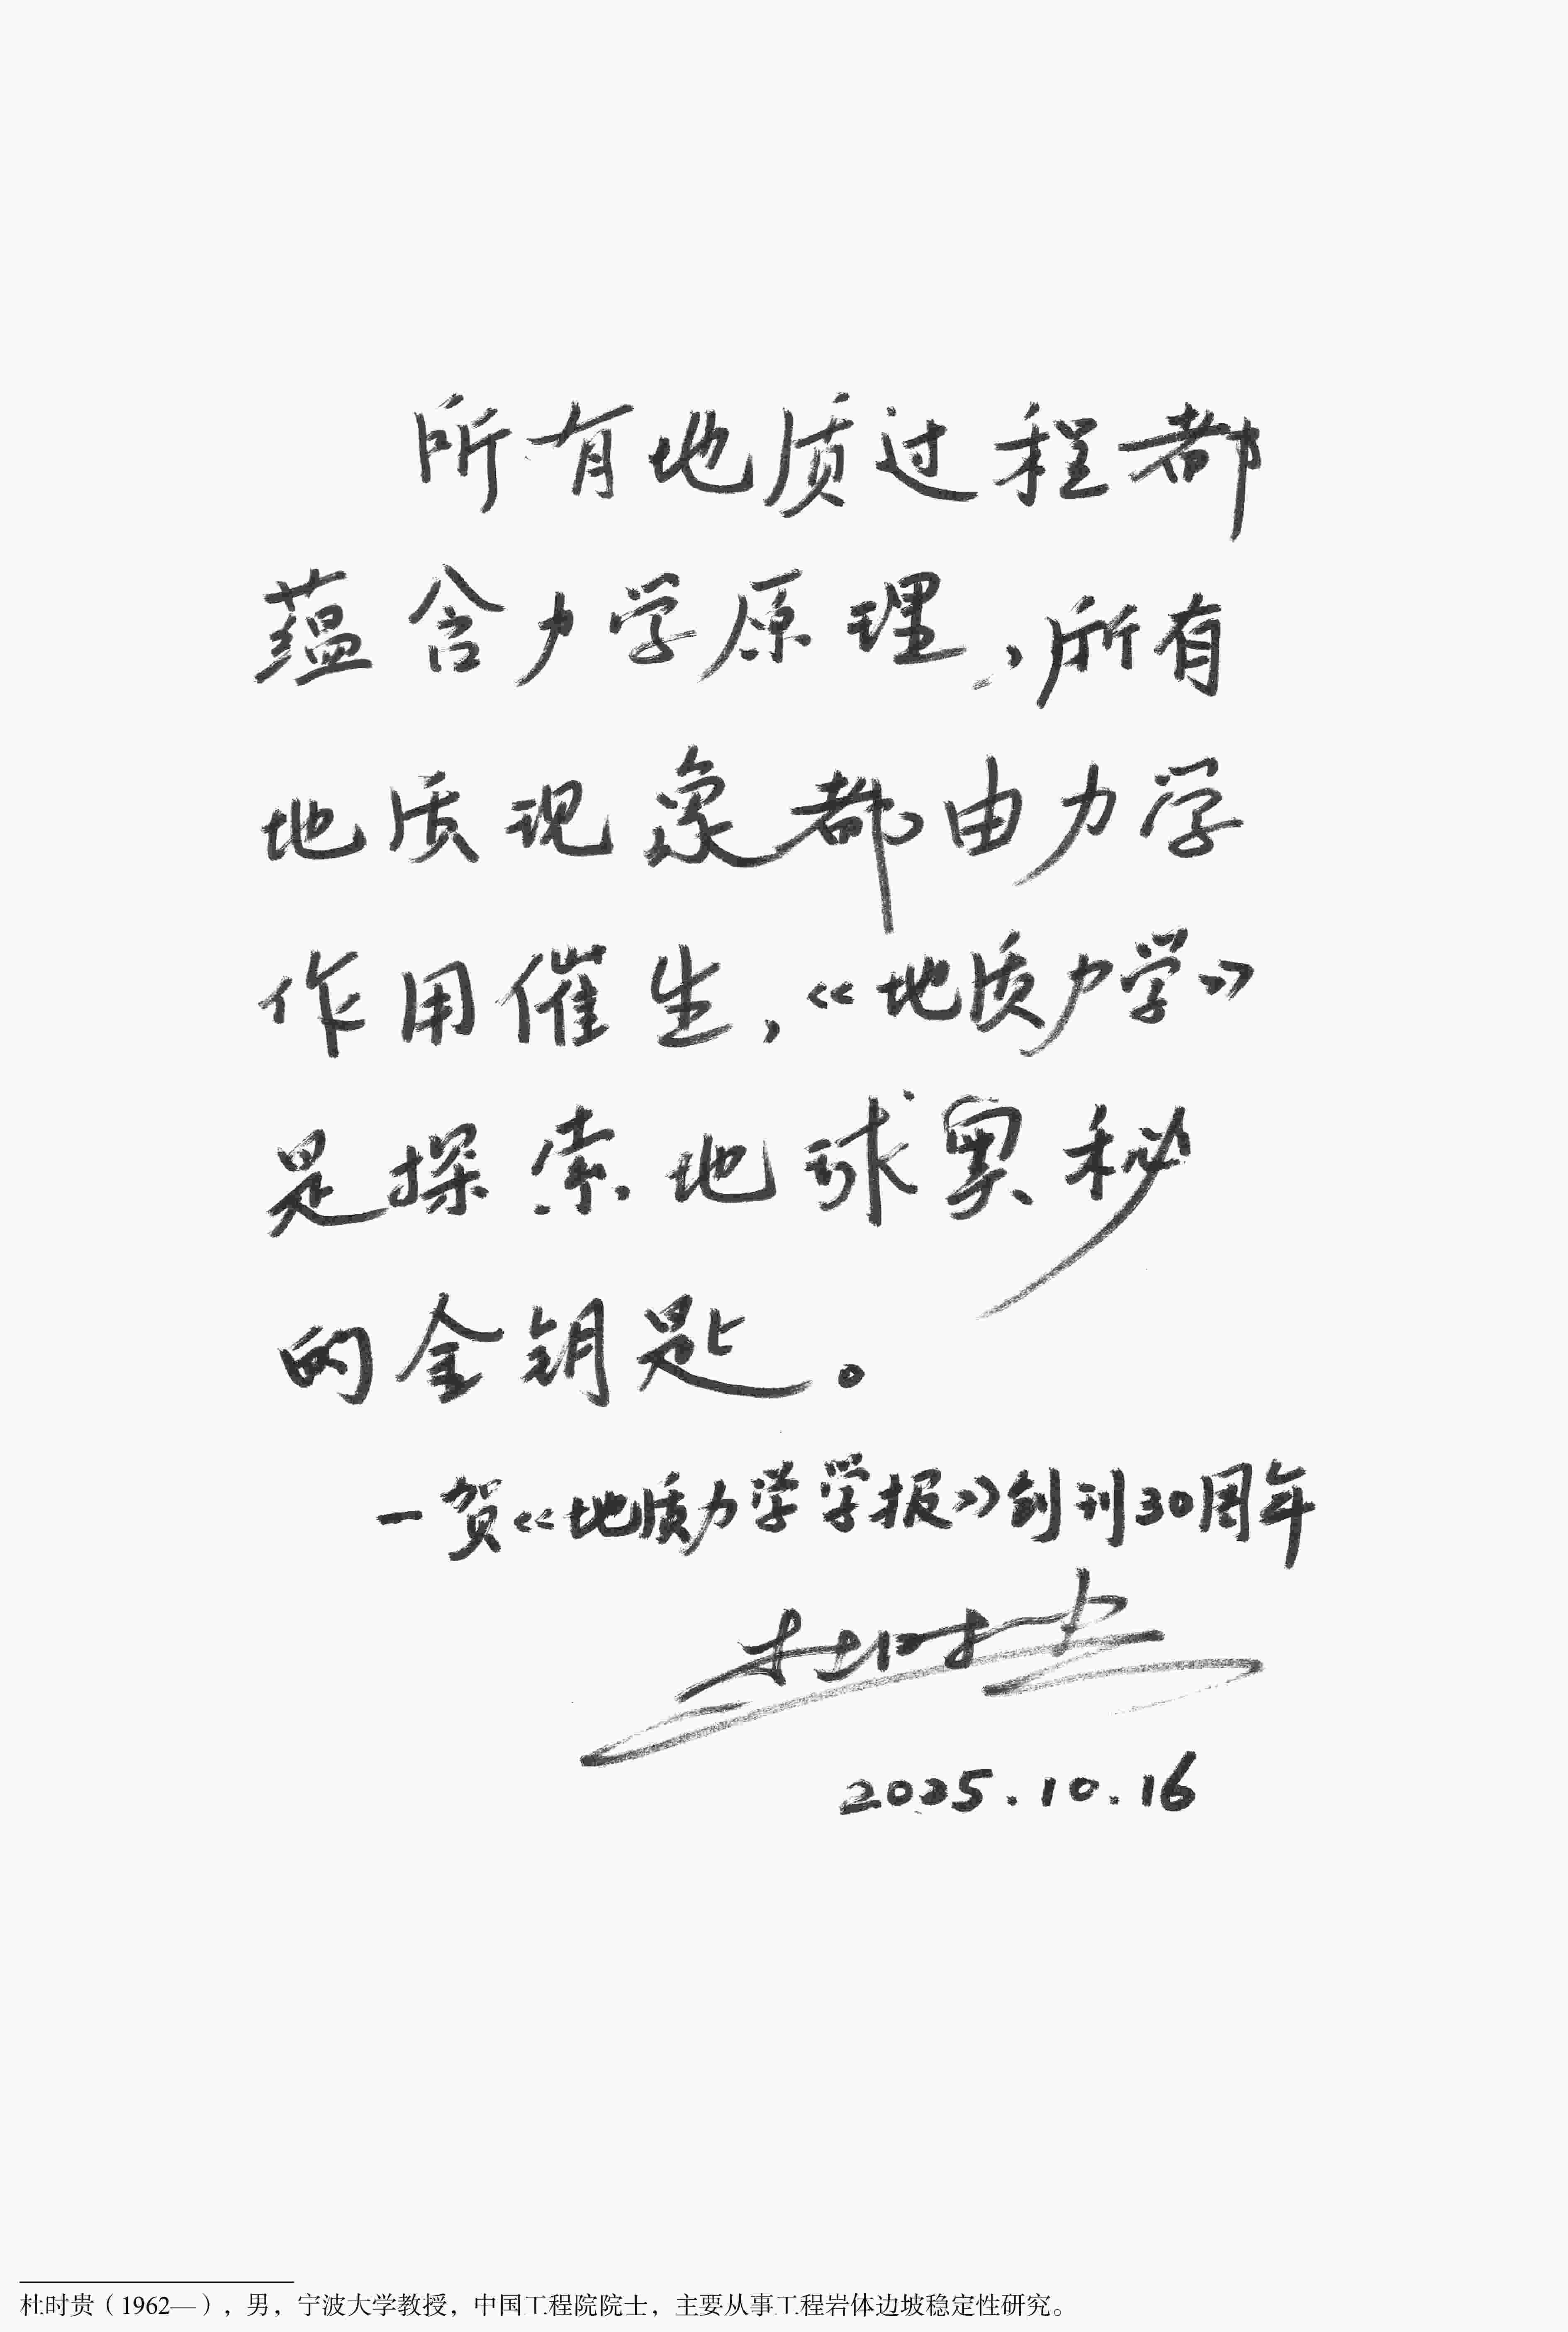 所有地质过程都
蕴含力学原理，所有
地质现象都由力学
作用催生，《地质力学》
是探索地球奥秘
的金钥匙。
—贺《地质力学学报》创刊30周年
杜时贵
2025.10.16
杜时贵（1962—），男，宁波大学教授，中国工程院院士，主要从事工程岩体边坡稳定性研究。